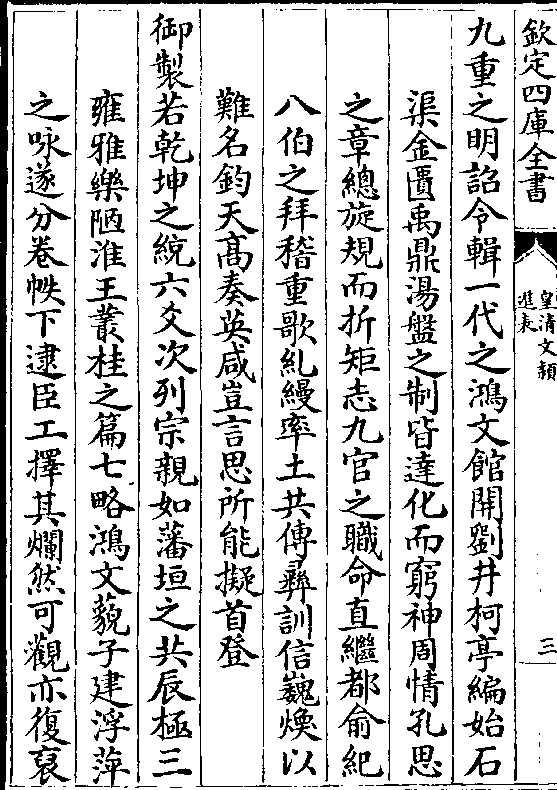 欽定四庫全書
皇清文頴
進表
三
九重之明詔令輯一代之鴻文館開劉井柯亭編始石
渠金匱禹鼎湯盤之制皆達化而窮神周情孔思
之章總旋規而折矩志九官之職命直繼都俞紀
八伯之拜稽重歌糺縵率土共傳彞訓信巍煥以
難名鈞天髙奏英咸豈言思所能擬首登
御製若乾坤之統六爻次列宗親如藩垣之共辰極三
雍雅樂陋淮王叢桂之篇七略鴻文藐子建浮萍
之咏遂分卷帙下逮臣工擇其爛然可觀亦復裒